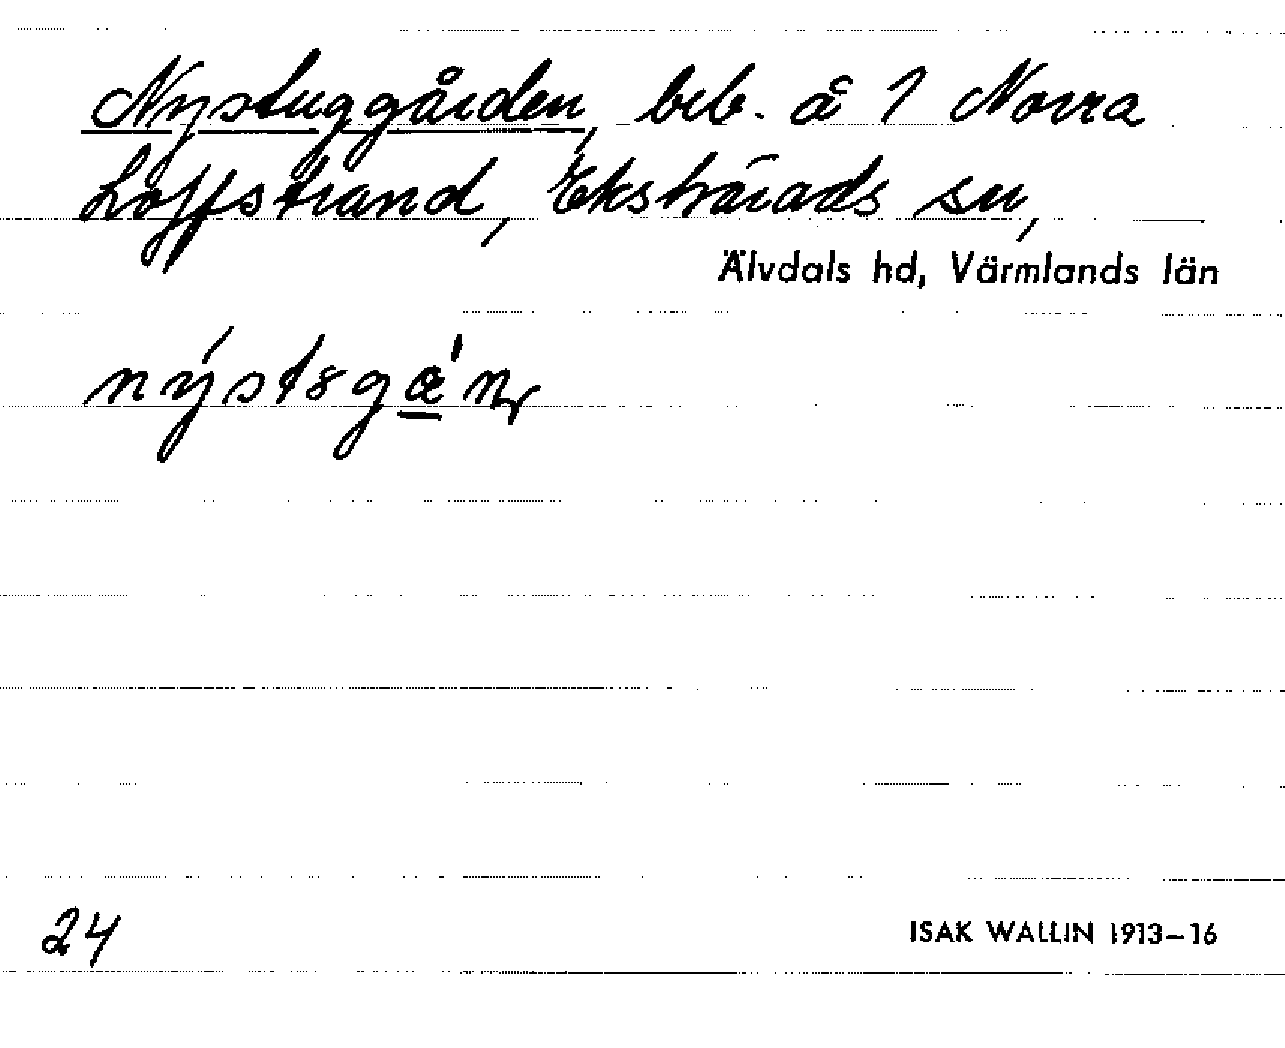 Nystuggården, beb. å 1 Norra
Löffstrand, Ekshärads sn,
Älvdals hd, Värmlands län
24
ISAK WALLIN 1913–16